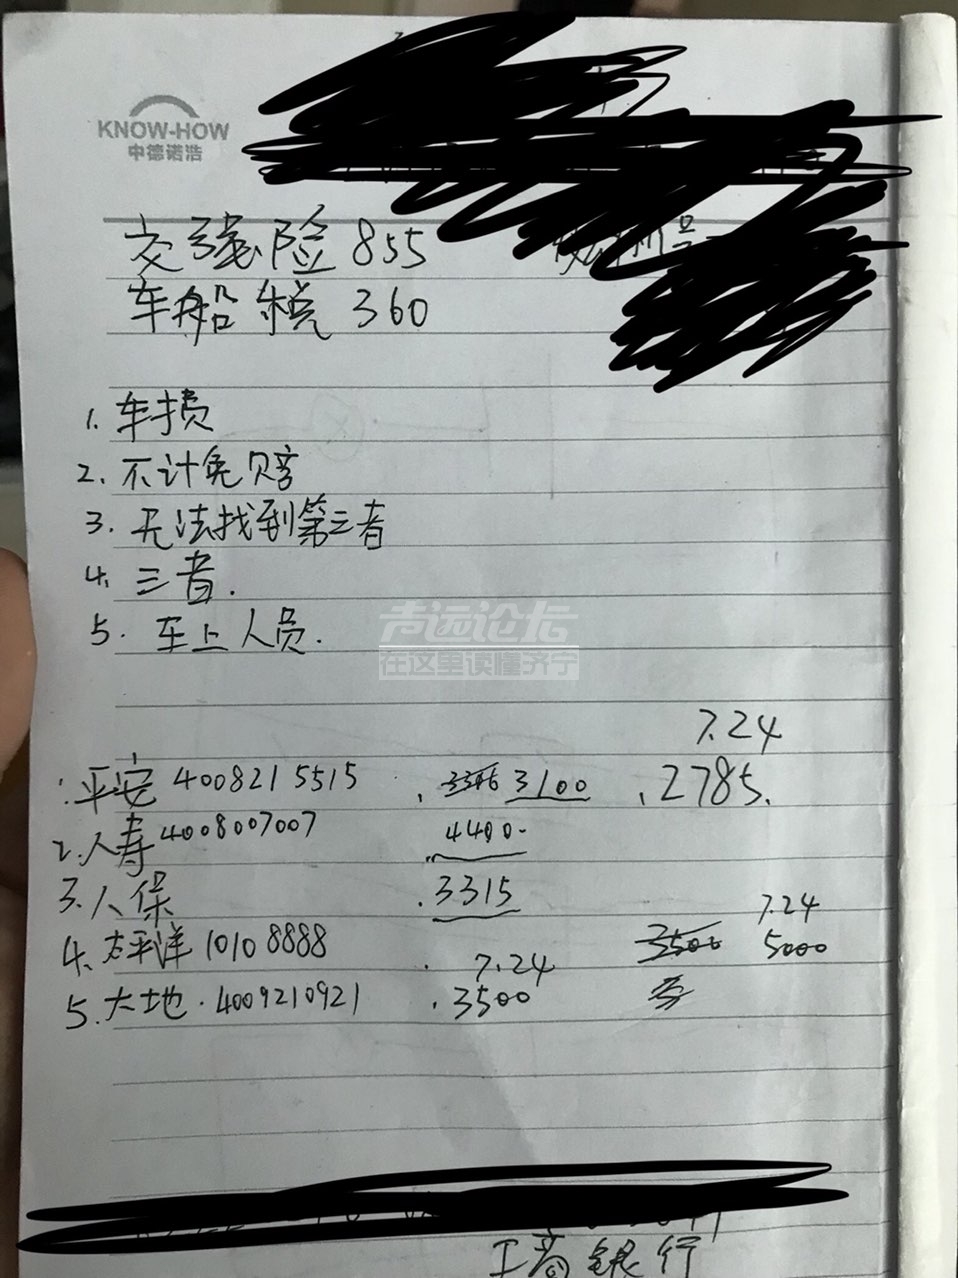 KNOW-HOW
中德诺浩
交强险 855
车船税 360
1. 车损
2. 不计免赔
3. 无法找到第三者
4. 三者.
5. 车上人员.
声远论坛
在这里读懂济宁
7.24
1. 平安 4008215515 . 3100 . 2785.
2. 人寿 4008007007 4400-
3. 人保 . 3315
7.24
4. 太平洋 10108888 . 3500 5000
7.24
5. 大地 . 4009210921 . 3500
工商银行